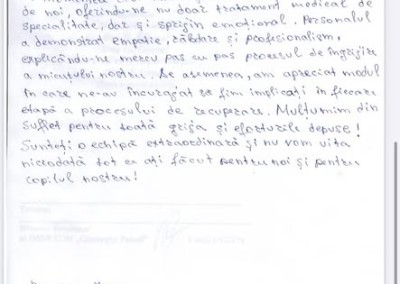 de noi, oferindu-ne nu doar tratament medical de
specialitate, dar și sprijin emoțional. Personalul
a demonstrat empatie, răbdare și profesionalism,
explicându-ne mereu pas cu pas procesul de îngrijire
a micuțului nostru. De asemenea, am apreciat modul
în care ne-au încurajat să fim implicați în fiecare
etapă a procesului de recuperare. Mulțumim din
suflet pentru toată grija și eforturile depuse!
Sunteți o echipă extraordinară și nu vom uita
niciodată tot ce ați făcut pentru noi și pentru
copilul nostru!